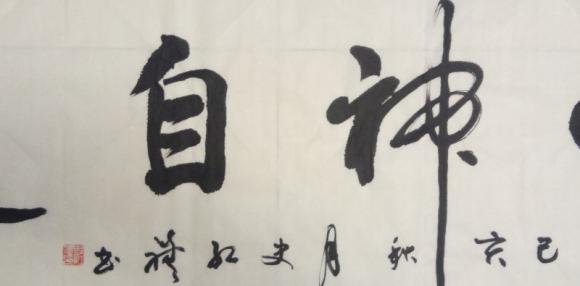 神自
己亥秋月史红书